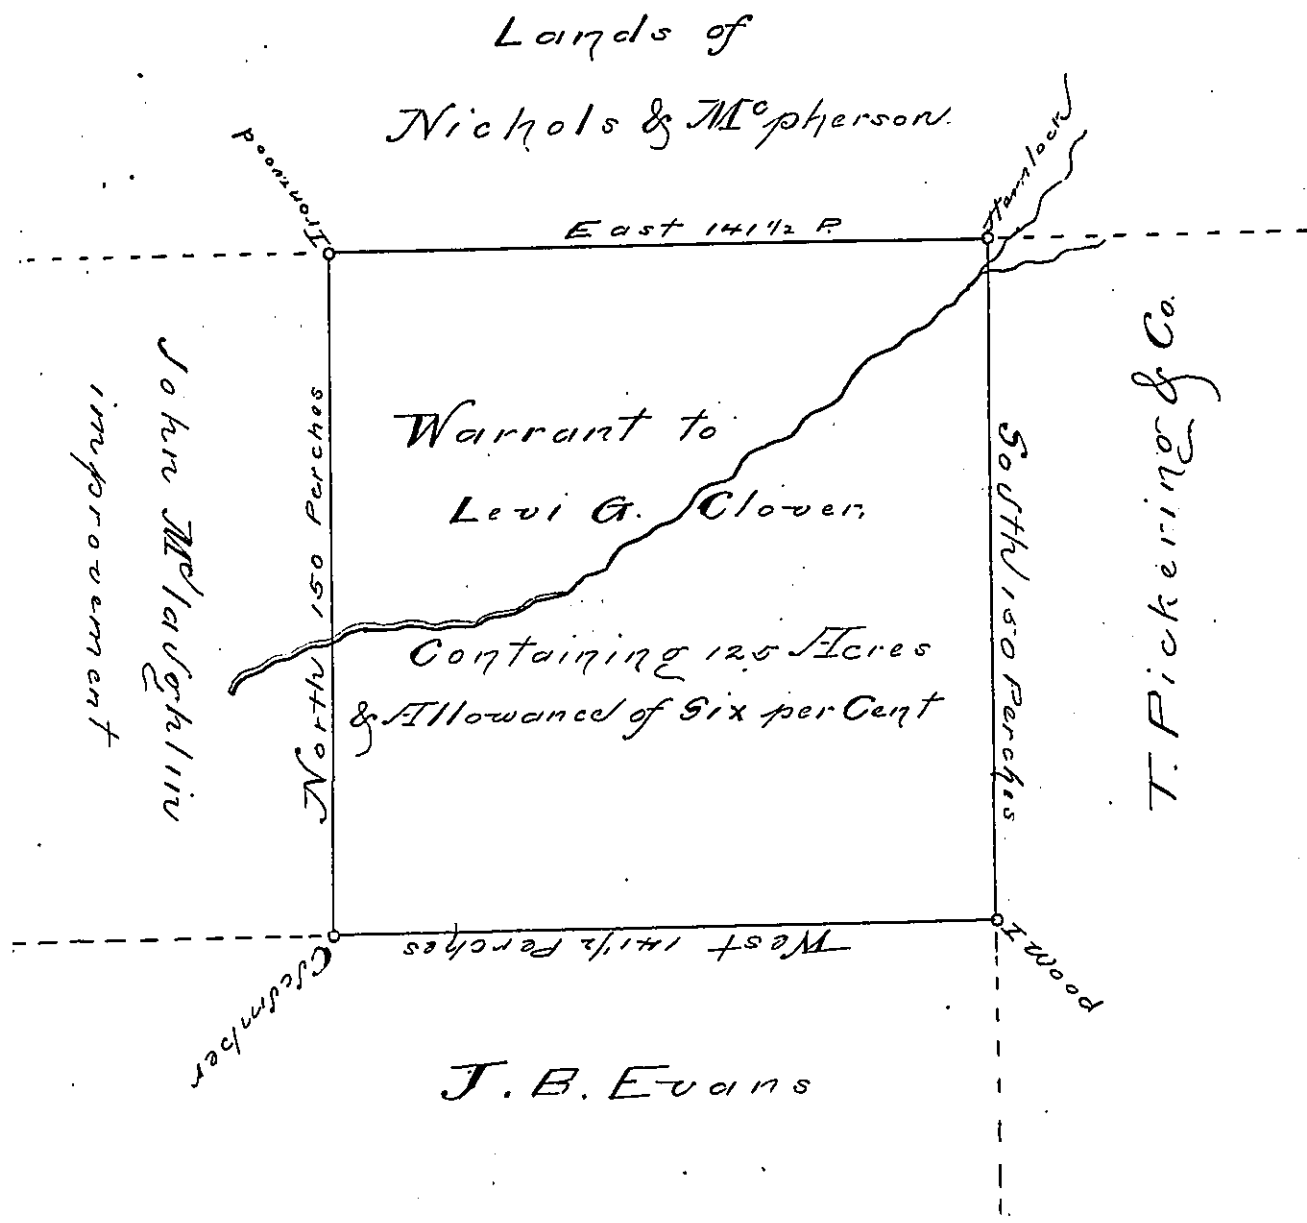 Lands of
Nichols & Mcpherson.
Ironwood
Hemlock
East 141 1/2 P.
John Mclaughlin
improvement
North 150 Perches
Warrant to
Levi G. Clover,
Containing 125 Acres
& Allowance of Six per Cent
South 150 Perches
T. Pickering & Co.
West 141 1/2 Perches
Cucumber
I Wood
J. B. Evans